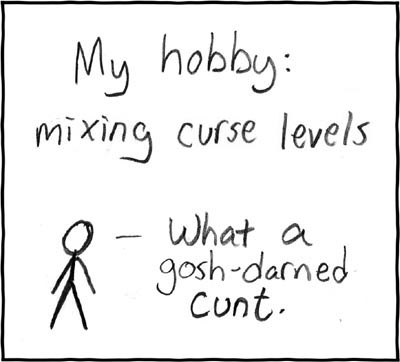 My hobby:
mixing curse levels
— What a
gosh-darned
cunt.